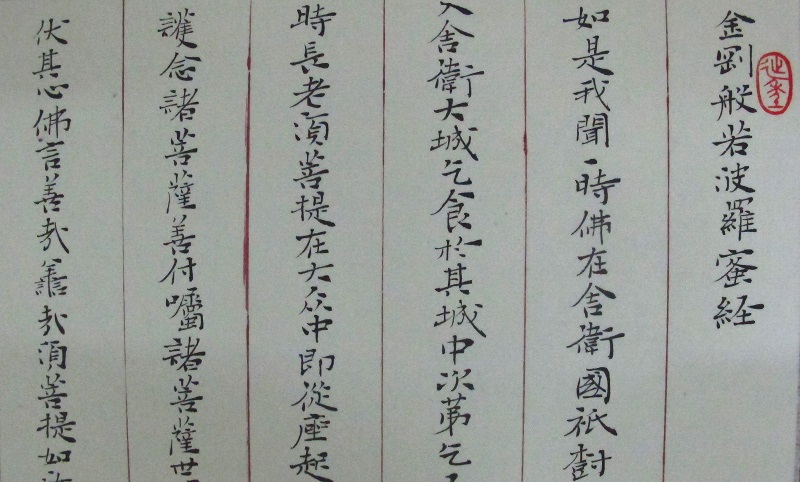 金剛般若波羅蜜経
如是我聞一時佛在舍衛國祇樹
入舍衛大城乞食於其城中次第乞
時長老須菩提在大众中即從座起
護念諸菩薩善付囑諸菩薩世
伏其心佛言善哉譱哉須菩提如